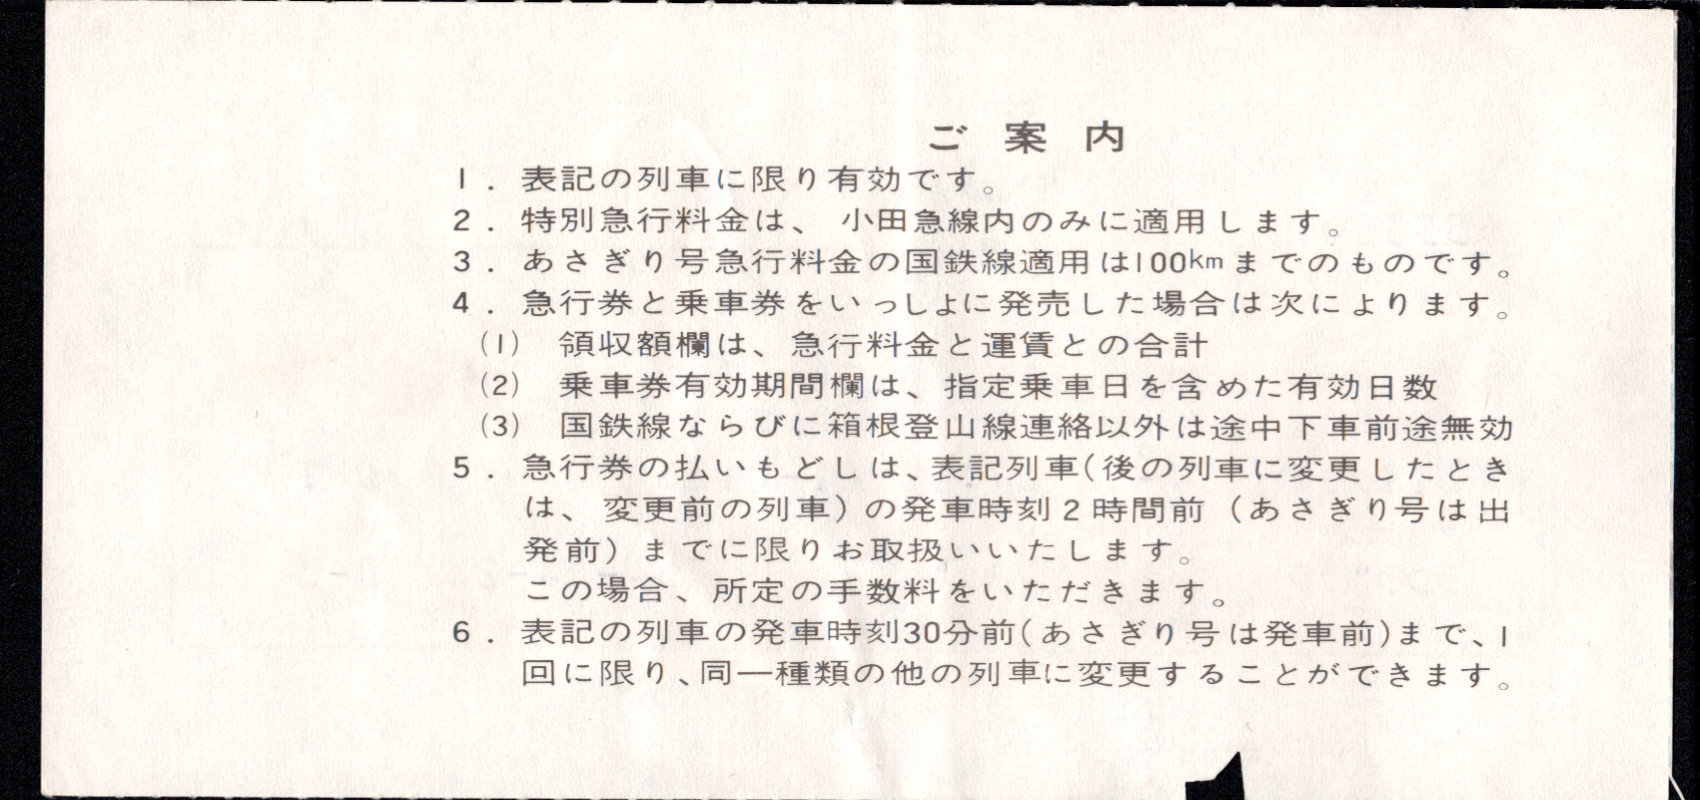 ご案内
1．表記の列車に限り有効です。
2．特別急行料金は、小田急線内のみに適用します。
3．あさぎり号急行料金の国鉄線適用は100kmまでのものです。
4．急行券と乗車券をいっしょに発売した場合は次によります。
(1) 領収額欄は、急行料金と運賃との合計
(2) 乗車券有効期間欄は、指定乗車日を含めた有効日数
(3) 国鉄線ならびに箱根登山線連絡以外は途中下車前途無効
5．急行券の払いもどしは、表記列車(後の列車に変更したとき
は、変更前の列車)の発車時刻2時間前(あさぎり号は出
発前)までに限りお取扱いいたします。
この場合、所定の手数料をいただきます。
6．表記の列車の発車時刻30分前(あさぎり号は発車前)まで、1
回に限り、同一種類の他の列車に変更することができます。